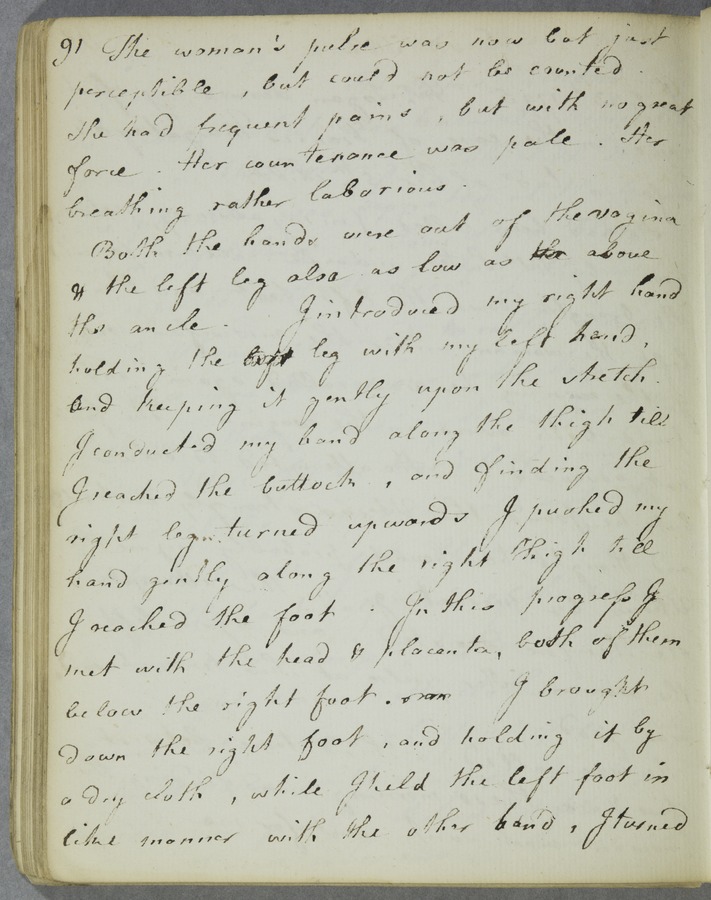 91 The woman's pulse was now but just
perceptible, but could not be counted.
She had frequent pains, but with no great
force. Her countenance was pale. Her
breathing rather laborious.
Both the hands were out of the vagina
& the left leg also as low as the above
the ancle. I introduced my right hand
holding the left leg with my left hand,
and keeping it gently upon the stretch.
I conducted my hand along the thigh till
I reached the buttock, and finding the
right leg turned upwards I pushed my
hand gently along the right thigh till
I reached the foot. In this progress I
met with the head & placenta, both of them
below the right foot. I brought
down the right foot, and holding it by
a dry cloth, while I held the left foot in
like manner with the other hand, I turned